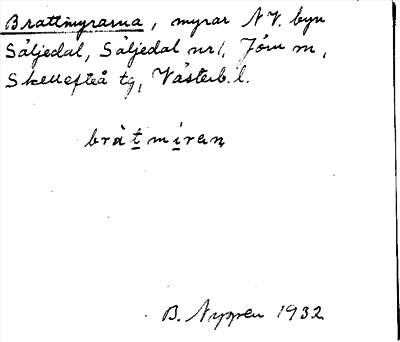 Brattmyrarna, myrar NV. byn
Säljedal, Säljedal nr 1, Jörn m,
Skellefteå tg, Västerb. l.
bràtmíraṇ
B. Nyppen 1932